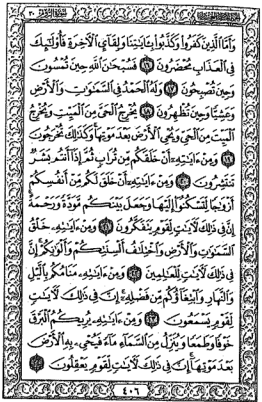 وَأَمَّا ٱلَّذِينَ كَفَرُوا۟ وَكَذَّبُوا۟ بِـَٔايَـٰتِنَا وَلِقَآئِ ٱلْـَٔاخِرَةِ فَأُو۟لَـٰٓئِكَ
فِى ٱلْعَذَابِ مُحْضَرُونَ ١٦ فَسُبْحَـٰنَ ٱللَّهِ حِينَ تُمْسُونَ
وَحِينَ تُصْبِحُونَ ١٧ وَلَهُ ٱلْحَمْدُ فِى ٱلسَّمَـٰوَٰتِ وَٱلْأَرْضِ
وَعَشِيًّا وَحِينَ تُظْهِرُونَ ١٨ يُخْرِجُ ٱلْحَىَّ مِنَ ٱلْمَيِّتِ وَيُخْرِجُ
ٱلْمَيِّتَ مِنَ ٱلْحَىِّ وَيُحْىِ ٱلْأَرْضَ بَعْدَ مَوْتِهَا وَكَذَٰلِكَ تُخْرَجُونَ
١٩ وَمِنْ ءَايَـٰتِهِۦٓ أَنْ خَلَقَكُم مِّن تُرَابٍ ثُمَّ إِذَآ أَنتُم بَشَرٌ
تَنتَشِرُونَ ٢٠ وَمِنْ ءَايَـٰتِهِۦٓ أَنْ خَلَقَ لَكُم مِّنْ أَنفُسِكُمْ
أَزْوَٰجًا لِّتَسْكُنُوٓا۟ إِلَيْهَا وَجَعَلَ بَيْنَكُم مَّوَدَّةً وَرَحْمَةً
إِنَّ فِى ذَٰلِكَ لَـَٔايَـٰتٍ لِّقَوْمٍ يَتَفَكَّرُونَ ٢١ وَمِنْ ءَايَـٰتِهِۦ خَلْقُ
ٱلسَّمَـٰوَٰتِ وَٱلْأَرْضِ وَٱخْتِلَـٰفُ أَلْسِنَتِكُمْ وَأَلْوَٰنِكُمْ إِنَّ
فِى ذَٰلِكَ لَـَٔايَـٰتٍ لِّلْعَـٰلِمِينَ ٢٢ وَمِنْ ءَايَـٰتِهِۦ مَنَامُكُم بِٱلَّيْلِ
وَٱلنَّهَارِ وَٱبْتِغَآؤُكُم مِّن فَضْلِهِۦٓ إِنَّ فِى ذَٰلِكَ لَـَٔايَـٰتٍ
لِّقَوْمٍ يَسْمَعُونَ ٢٣ وَمِنْ ءَايَـٰتِهِۦ يُرِيكُمُ ٱلْبَرْقَ
خَوْفًا وَطَمَعًا وَيُنَزِّلُ مِنَ ٱلسَّمَآءِ مَآءً فَيُحْىِۦ بِهِ ٱلْأَرْضَ
بَعْدَ مَوْتِهَآ إِنَّ فِى ذَٰلِكَ لَـَٔايَـٰتٍ لِّقَوْمٍ يَعْقِلُونَ ٢٤
٤٠٦